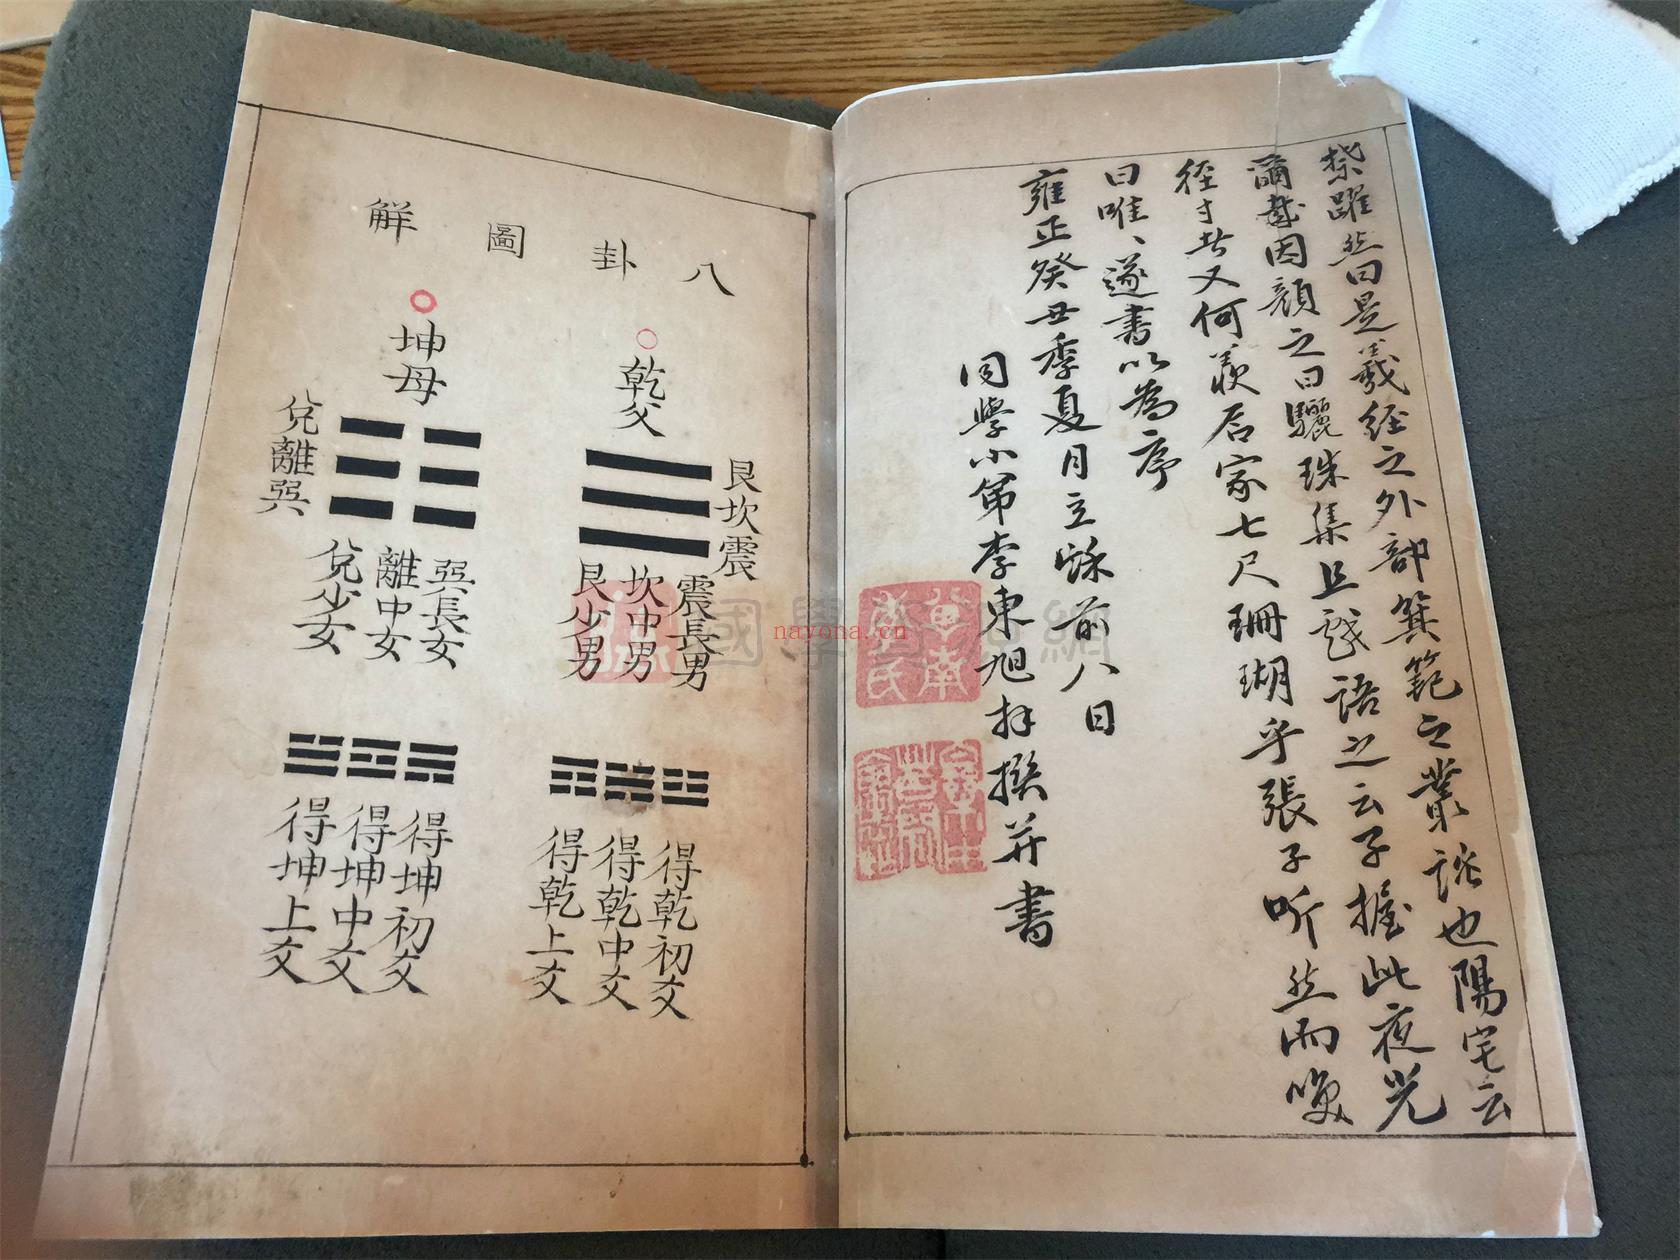 躍然曰是羲經之外部箕範之叢談也陽宅云
爾哉因顏之曰驪珠集且戲語之云子握此夜光
徑寸者又何羨石家七尺珊瑚乎張子听然而喚
曰唯、遂書以為序
雍正癸丑季夏月立穌前八日
同學小弟李東旭拜撰并書
八卦圖解
乾父
艮坎震
震長男
坎中男
艮少男
得乾初爻
得乾中爻
得乾上爻
坤母
兌離巽
巽長女
離中女
兌少女
得坤初爻
得坤中爻
得坤上爻
國學資源網
nayona.cn